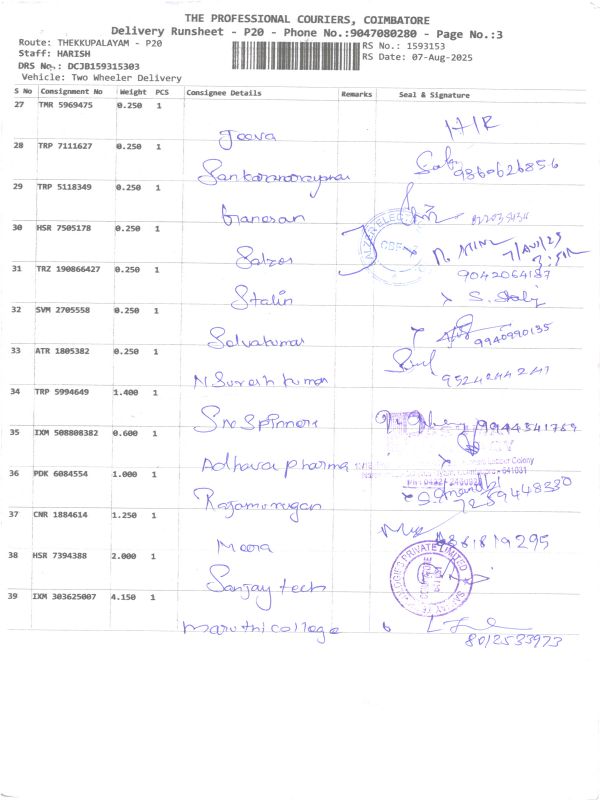 THE PROFESSIONAL COURIERS, COIMBATORE
Delivery Runsheet - P20 - Phone No.:9047080280 - Page No.:3
Route: THEKKUPALAYAM - P20
Staff: HARISH
DRS No.: DCJB159315303
Vehicle: Two Wheeler Delivery
RS No.: 1593153
RS Date: 07-Aug-2025
S No Consignment No Weight PCS Consignee Details Remarks Seal & Signature
27 TMR 5969475 0.250 1
Jeeva
28 TRP 7111627 0.250 1
Sankaranarayanan 9860626856
29 TRP 5118349 0.250 1
Ganesan
30 HSR 7505178 0.250 1
Salzer
9042064187
31 TRZ 190866427 0.250 1
Stalin
32 SVM 2705558 0.250 1
Selvakumar 9940990135
33 ATR 1805382 0.250 1
N Suresh kumar
34 TRP 5994649 1.400 1
Sre Spinners 9944341769
35 IXM 508808382 0.600 1
Adhava pharma
36 PDK 6084554 1.000 1
Rajamurugan 7259448330
37 CNR 1884614 1.250 1
Meera
38 HSR 7394388 2.000 1
Sanjay tech
PRIVATE LIMITED
39 IXM 303625007 4.150 1
maruthi college
8012533973